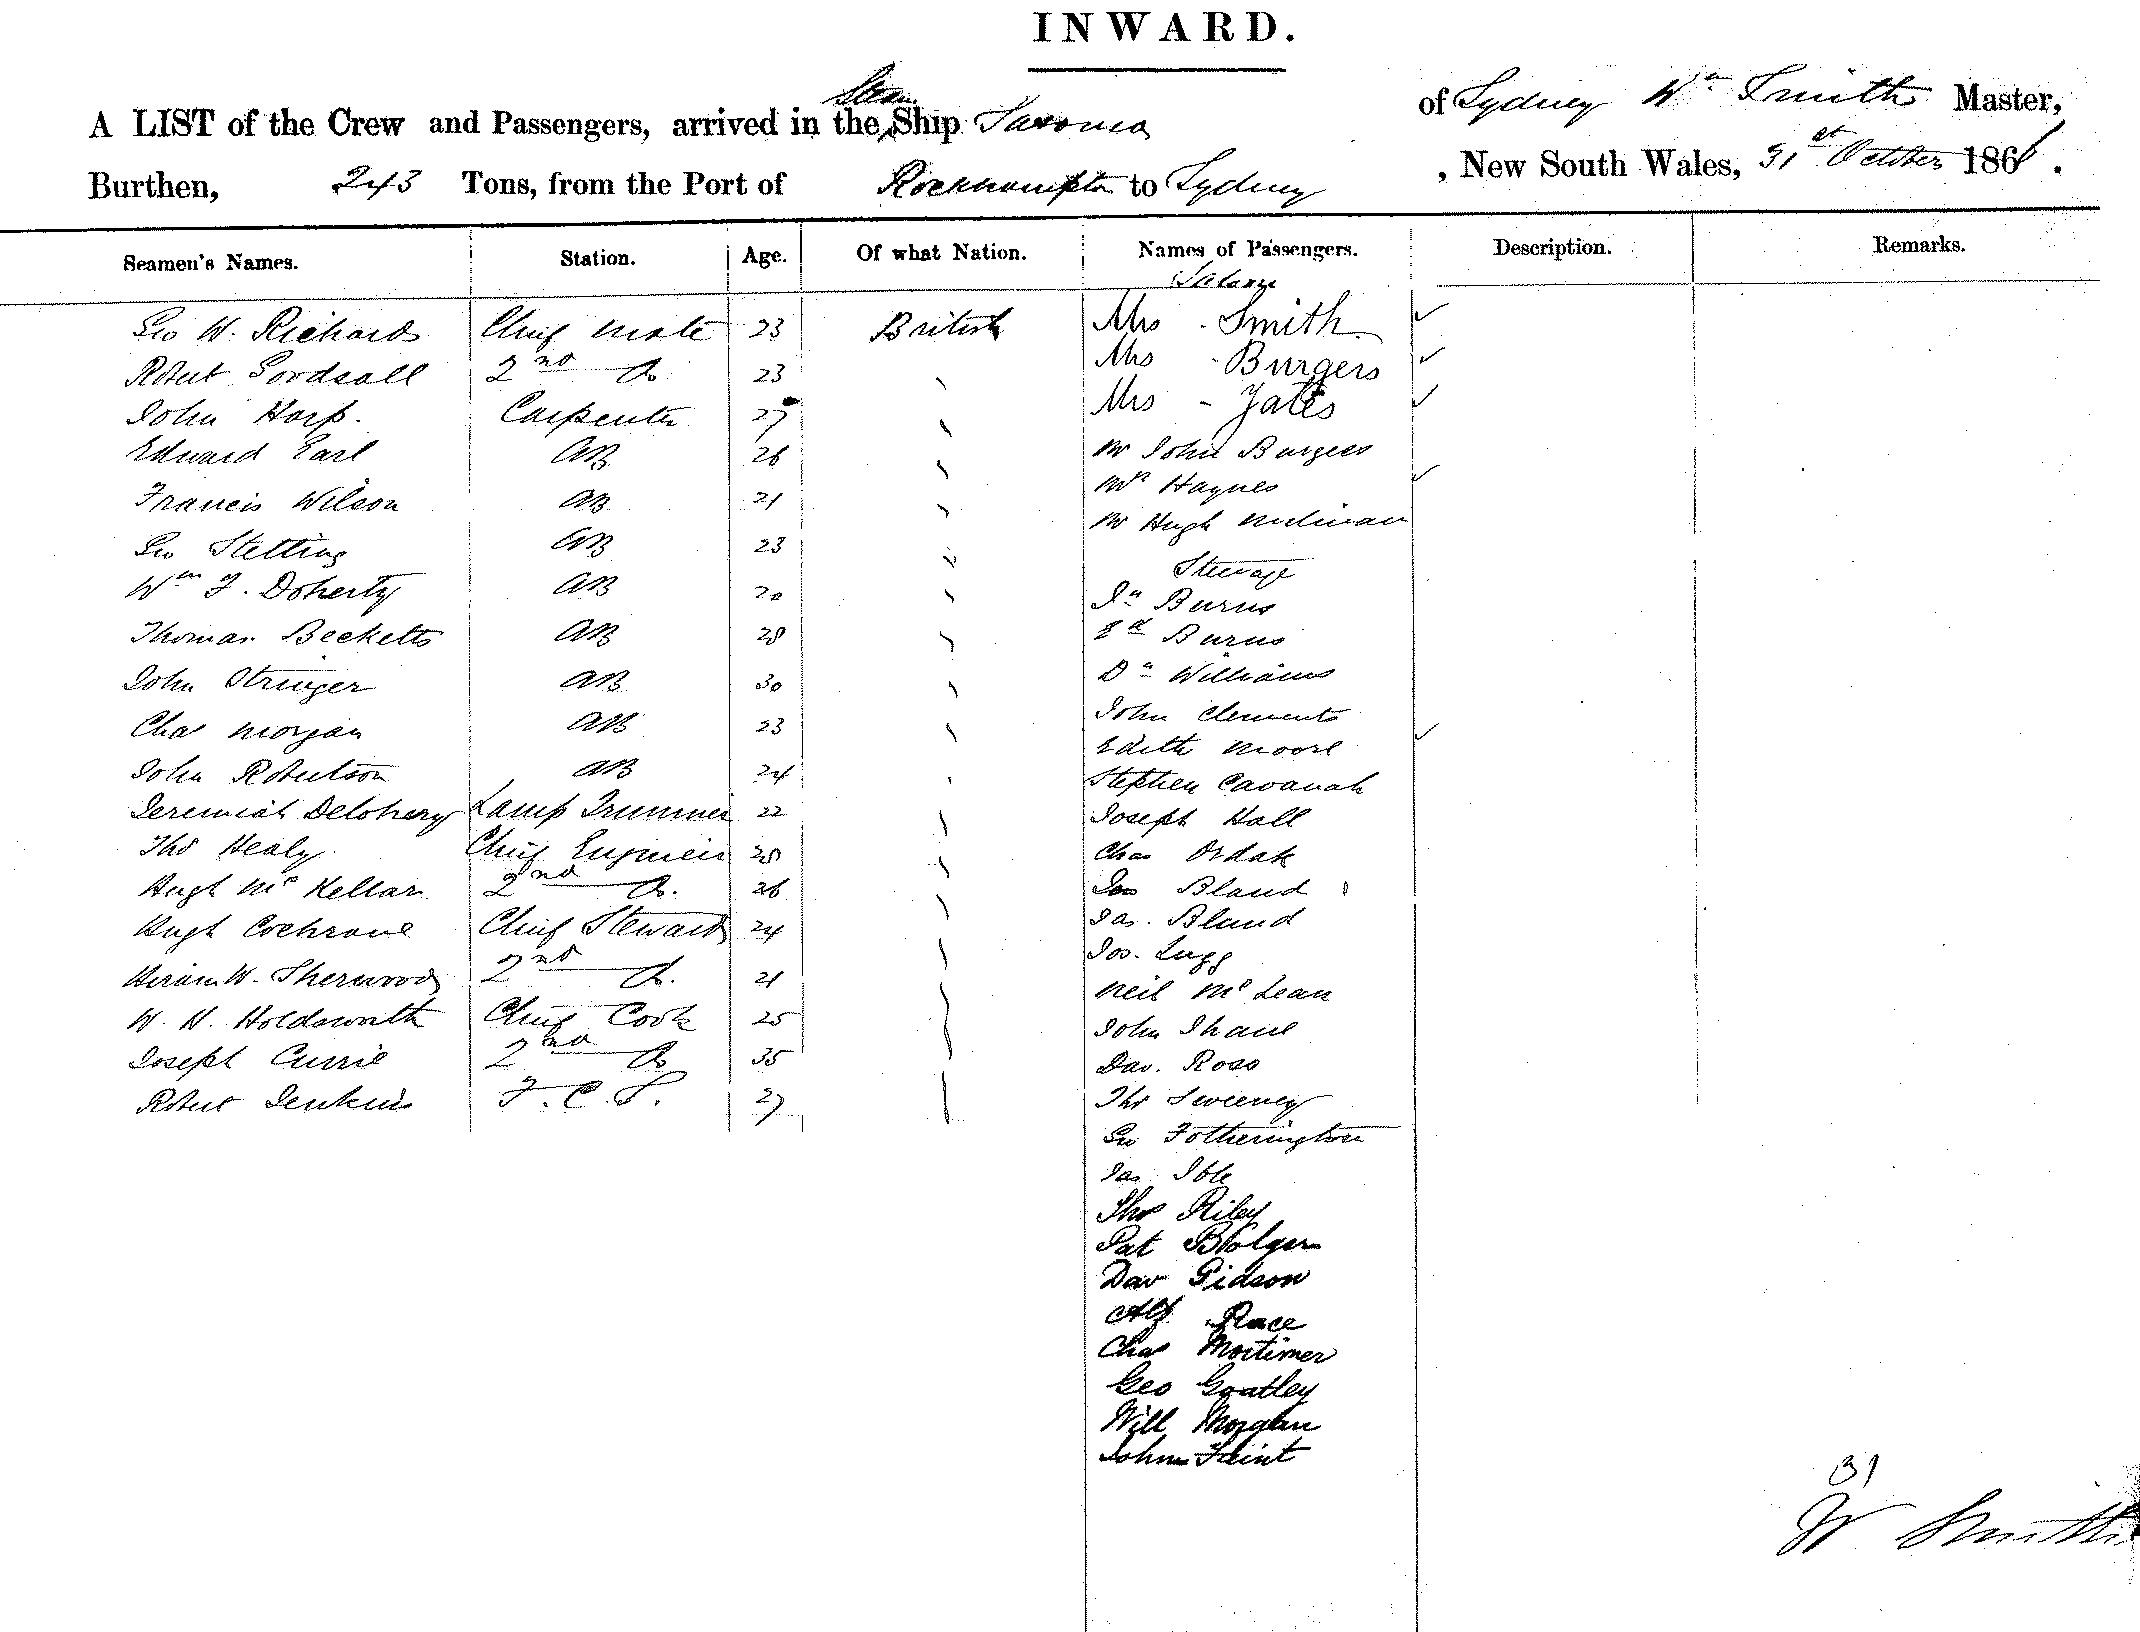 INWARD.
A LIST of the Crew and Passengers, arrived in the Steam Ship Saxonia of Sydney Wm Smith Master,
Burthen, 243 Tons, from the Port of Rockhampton to Sydney , New South Wales, 31st October 186 .
Seamen's Names. Station. Age. Of what Nation. Names of Passengers. Description. Remarks.
Saloon
Geo W. Richards Chief Mate 23 British Mrs - Smith
Robert Goodsall 2nd Do 23 Mrs - Burgess
John Harp. Carpenter 27 Mrs - Yates
Edward Earl AB 26 Mr John Burgess
Francis Wilson AB 21 Mr Haynes
Geo Stelling AB 23 Mr Hugh Milman
Steerage
Wm F. Doherty AB 20 Jn Burns
Thomas Becketts AB 28 Ed Burns
John Stringer AB 30 Dn Williams
Chas Morgan AB 23 John Clements
Edith Moore
John Robertson AB 24 Stephen Cavanah
Jeremiah Delohery Lamp Trimmer 22 Joseph Hall
Thos Healy Chief Engineer 28 Chas Ordak
Hugh McKellar 2nd Do. 26 Jas Bland
Hugh Cochrane Chief Steward 24 Jas. Bland
Jos. Lugg
Hiram W. Sherwood 2nd Do. 21 Neil McLean
W. H. Holdsworth Chief Cook 25 John Shane
Joseph Currie 2nd Do 35 Dav. Ross
Robert Jenkins F. C. S. 27 Thos Sweeney
Geo Fotherington
Jas. Ible
Thos Riley
Pat Bolger
Dav Gidson
Alf Race
Chas Mortimer
Geo Goatley
Will Morgan
John Flint
31
W Smith